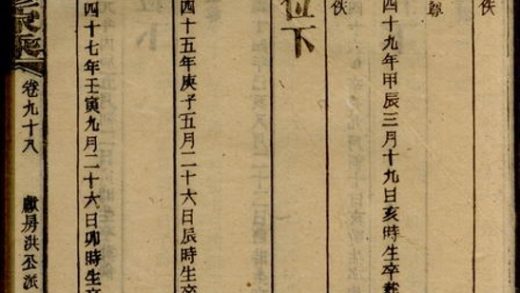 佚
尊
四十九年甲辰三月十九日亥時生卒葬
佚
位下
四十五年庚子五月二十六日辰時生卒
四十七年壬寅九月二十六日卯時生卒
卷九十八 獻房洪丕派